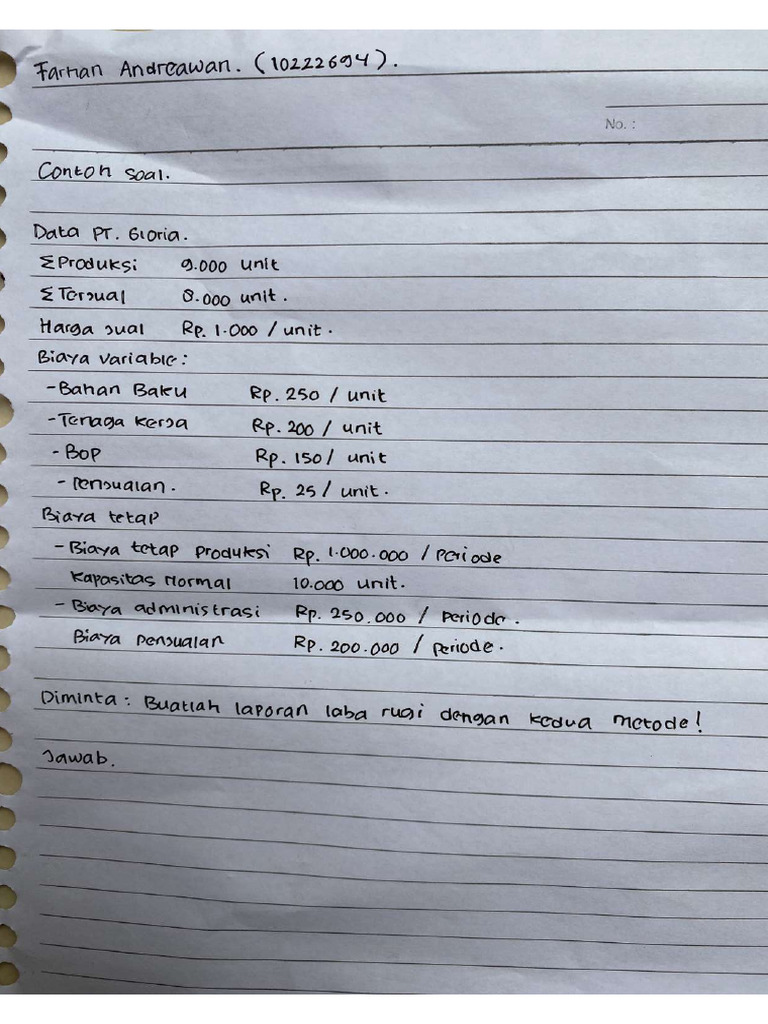 Farhan Andreawan. (10222694).
No. :
Contoh soal.
Data PT. Gloria.
ΣProduksi 9.000 unit
ΣTerjual 8.000 unit.
Harga jual Rp. 1.000 / unit.
Biaya variable :
- Bahan Baku Rp. 250 / unit
- Tenaga kerja Rp. 200 / unit
- BOP Rp. 150 / unit
- Penjualan. Rp. 25 / unit.
Biaya tetap
- Biaya tetap produksi Rp. 1.000.000 / Periode
Kapasitas Normal 10.000 unit.
- Biaya administrasi Rp. 250.000 / Periode.
Biaya penjualan Rp. 200.000 / Periode.
Diminta : Buatlah laporan laba rugi dengan kedua metode!
Jawab.